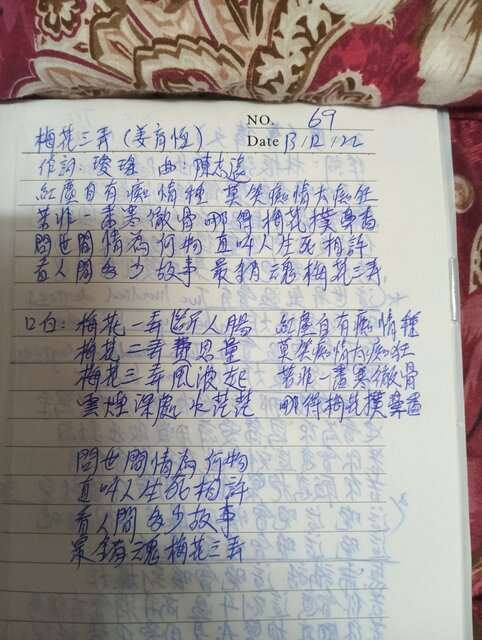 NO. 69
梅花三弄(姜育恆) Date 13/12/22
作詞:瓊瑤 曲:陳志遠
紅塵自有痴情種 莫笑痴情太痴狂
若非一番寒徹骨 哪得梅花撲鼻香
問世間情為何物 直叫人生死相許
看人間多少故事 最銷魂梅花三弄
口白:梅花一弄斷人腸 紅塵自有痴情種
梅花二弄費思量 莫笑痴情太痴狂
梅花三弄風波起 若非一番寒徹骨
雲煙深處水茫茫 哪得梅花撲鼻香
問世間情為何物
直叫人生死相許
看人間多少故事
最銷魂梅花三弄